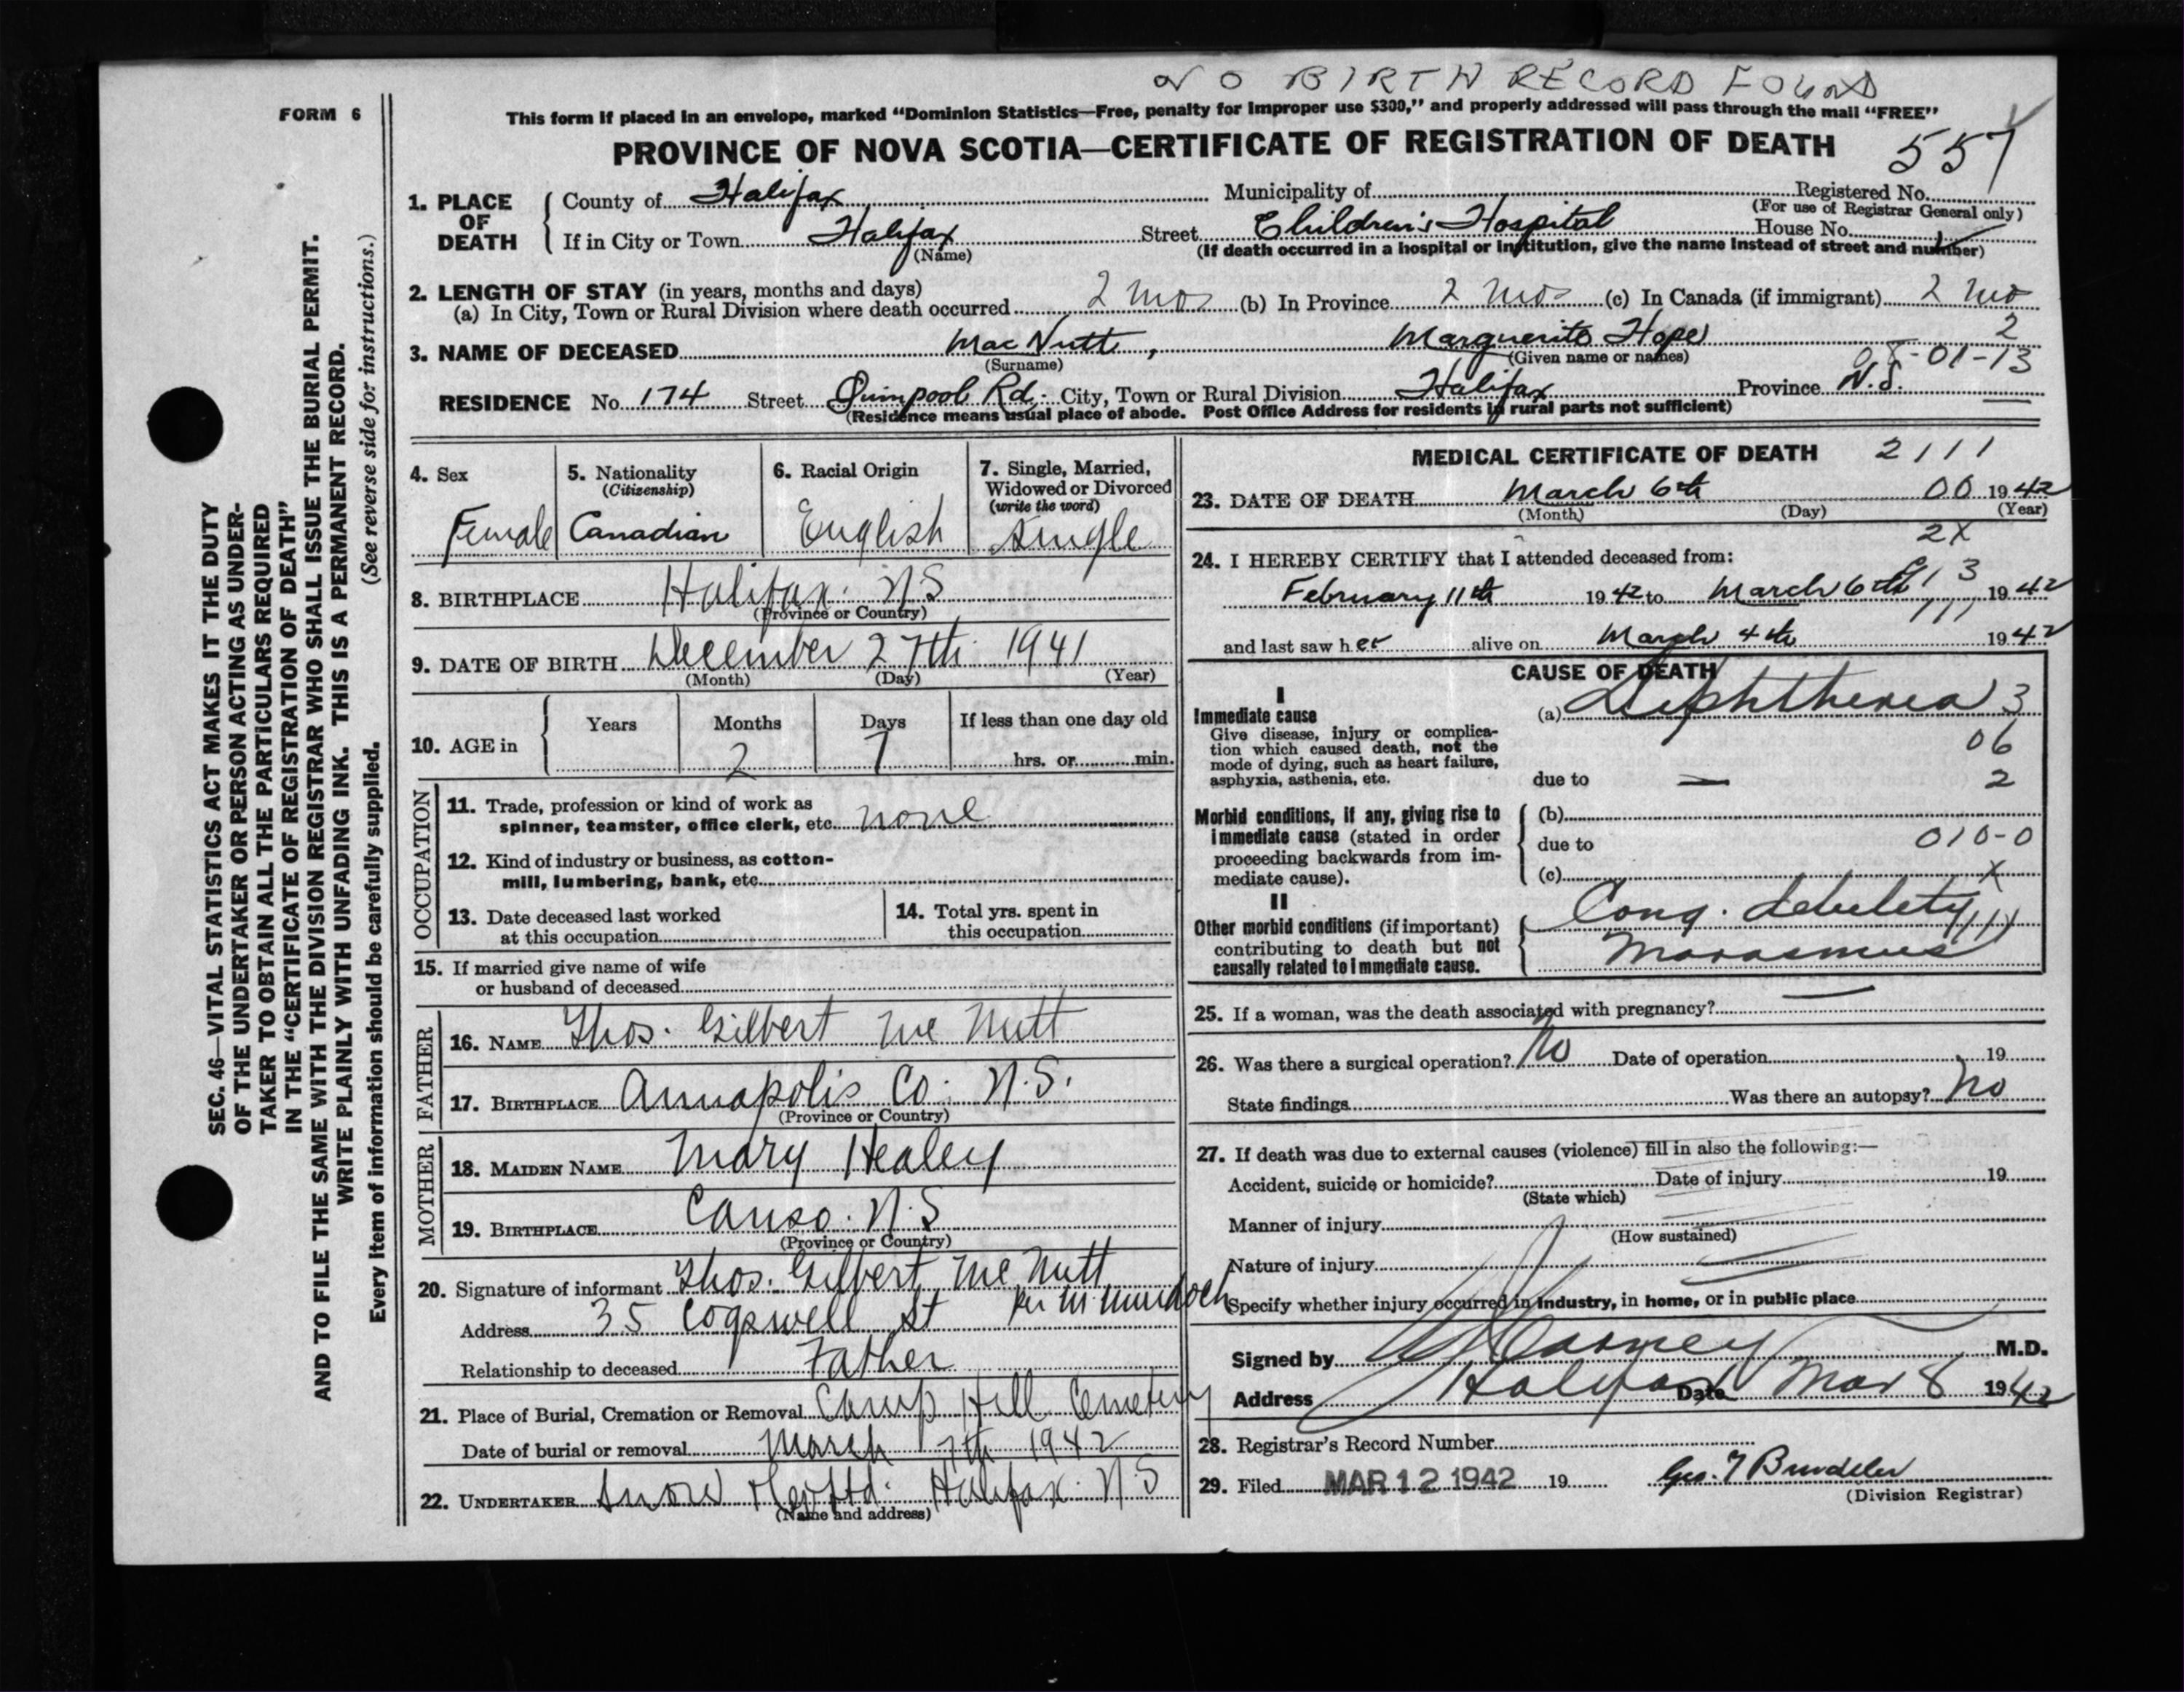 NO BIRTH RECORD FOUND
FORM 6
This form if placed in an envelope, marked "Dominion Statistics—Free, penalty for improper use $300," and properly addressed will pass through the mail "FREE"
PROVINCE OF NOVA SCOTIA—CERTIFICATE OF REGISTRATION OF DEATH 557
1. PLACE OF DEATH County of Halifax Municipality of Registered No.
(For use of Registrar General only)
If in City or Town Halifax Street Children's Hospital House No.
(Name) (If death occurred in a hospital or institution, give the name instead of street and number)
2. LENGTH OF STAY (in years, months and days)
(a) In City, Town or Rural Division where death occurred 2 mos (b) In Province 2 mos (c) In Canada (if immigrant) 2 mo
3. NAME OF DECEASED Mac Nutt, Marguerite Hope 2
(Surname) (Given name or names) 08-01-13
RESIDENCE No. 174 Street Quinpool Rd. City, Town or Rural Division Halifax Province N.S.
(Residence means usual place of abode. Post Office Address for residents in rural parts not sufficient)
4. Sex Female
5. Nationality (Citizenship) Canadian
6. Racial Origin English
7. Single, Married, Widowed or Divorced (write the word) Single
8. BIRTHPLACE Halifax. N S
(Province or Country)
9. DATE OF BIRTH December 27th 1941
(Month) (Day) (Year)
10. AGE in Years Months Days If less than one day old
2 7 hrs. or min.
OCCUPATION
11. Trade, profession or kind of work as
spinner, teamster, office clerk, etc. none
12. Kind of industry or business, as cotton-
mill, lumbering, bank, etc.
13. Date deceased last worked
at this occupation
14. Total yrs. spent in
this occupation
15. If married give name of wife
or husband of deceased
FATHER
16. NAME Thos. Gilbert Mc Nutt
17. BIRTHPLACE Annapolis Co. N.S.
(Province or Country)
MOTHER
18. MAIDEN NAME Mary Healey
19. BIRTHPLACE Canso. N.S
(Province or Country)
20. Signature of informant Thos. Gilbert Mc Nutt
per M Murdoch
Address 35 Cogswell St
Relationship to deceased Father
21. Place of Burial, Cremation or Removal Camp Hill Cemetery
Date of burial or removal March 7th 1942
22. UNDERTAKER Snow Ltd. Halifax. N.S
(Name and address)
MEDICAL CERTIFICATE OF DEATH 2111
23. DATE OF DEATH March 6th 00 1942
(Month) (Day) (Year)
2X
24. I HEREBY CERTIFY that I attended deceased from:
February 11th 1942 to March 6th 1942
and last saw her alive on March 4th 1942
CAUSE OF DEATH
I
Immediate cause
Give disease, injury or complica-
tion which caused death, not the
mode of dying, such as heart failure,
asphyxia, asthenia, etc.
(a) Diphtheria 3
06
due to — 2
Morbid conditions, if any, giving rise to
immediate cause (stated in order
proceeding backwards from im-
mediate cause).
(b)
due to 010-0
(c) X
II
Other morbid conditions (if important)
contributing to death but not
causally related to immediate cause.
Cong. debility 111
Marasmus
25. If a woman, was the death associated with pregnancy? —
26. Was there a surgical operation? No Date of operation 19
State findings Was there an autopsy? No
27. If death was due to external causes (violence) fill in also the following:—
Accident, suicide or homicide? Date of injury 19
(State which)
Manner of injury
(How sustained)
Nature of injury
Specify whether injury occurred in industry, in home, or in public place
Signed by M.D.
Address Halifax Date Mar 8 1942
28. Registrar's Record Number
29. Filed MAR 12 1942 19
(Division Registrar)
SEC. 46—VITAL STATISTICS ACT MAKES IT THE DUTY
OF THE UNDERTAKER OR PERSON ACTING AS UNDER-
TAKER TO OBTAIN ALL THE PARTICULARS REQUIRED
IN THE "CERTIFICATE OF REGISTRATION OF DEATH"
AND TO FILE THE SAME WITH THE DIVISION REGISTRAR WHO SHALL ISSUE THE BURIAL PERMIT.
WRITE PLAINLY WITH UNFADING INK. THIS IS A PERMANENT RECORD.
(See reverse side for instructions.)
Every item of information should be carefully supplied.